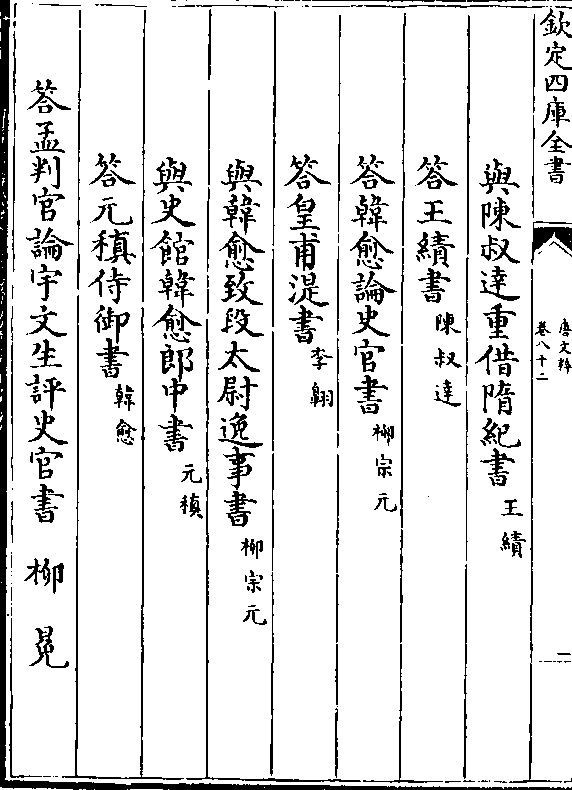 欽定四庫全書
唐文粹
卷八十二
一
與陳叔達重借隋紀書 王績
答王績書 陳叔達
答韓愈論史官書 柳宗元
答皇甫湜書 李翺
與韓愈致段太尉逸事書 柳宗元
與史館韓愈郎中書 元稹
答元稹侍御書 韓愈
答孟判官論宇文生評史官書 柳冕